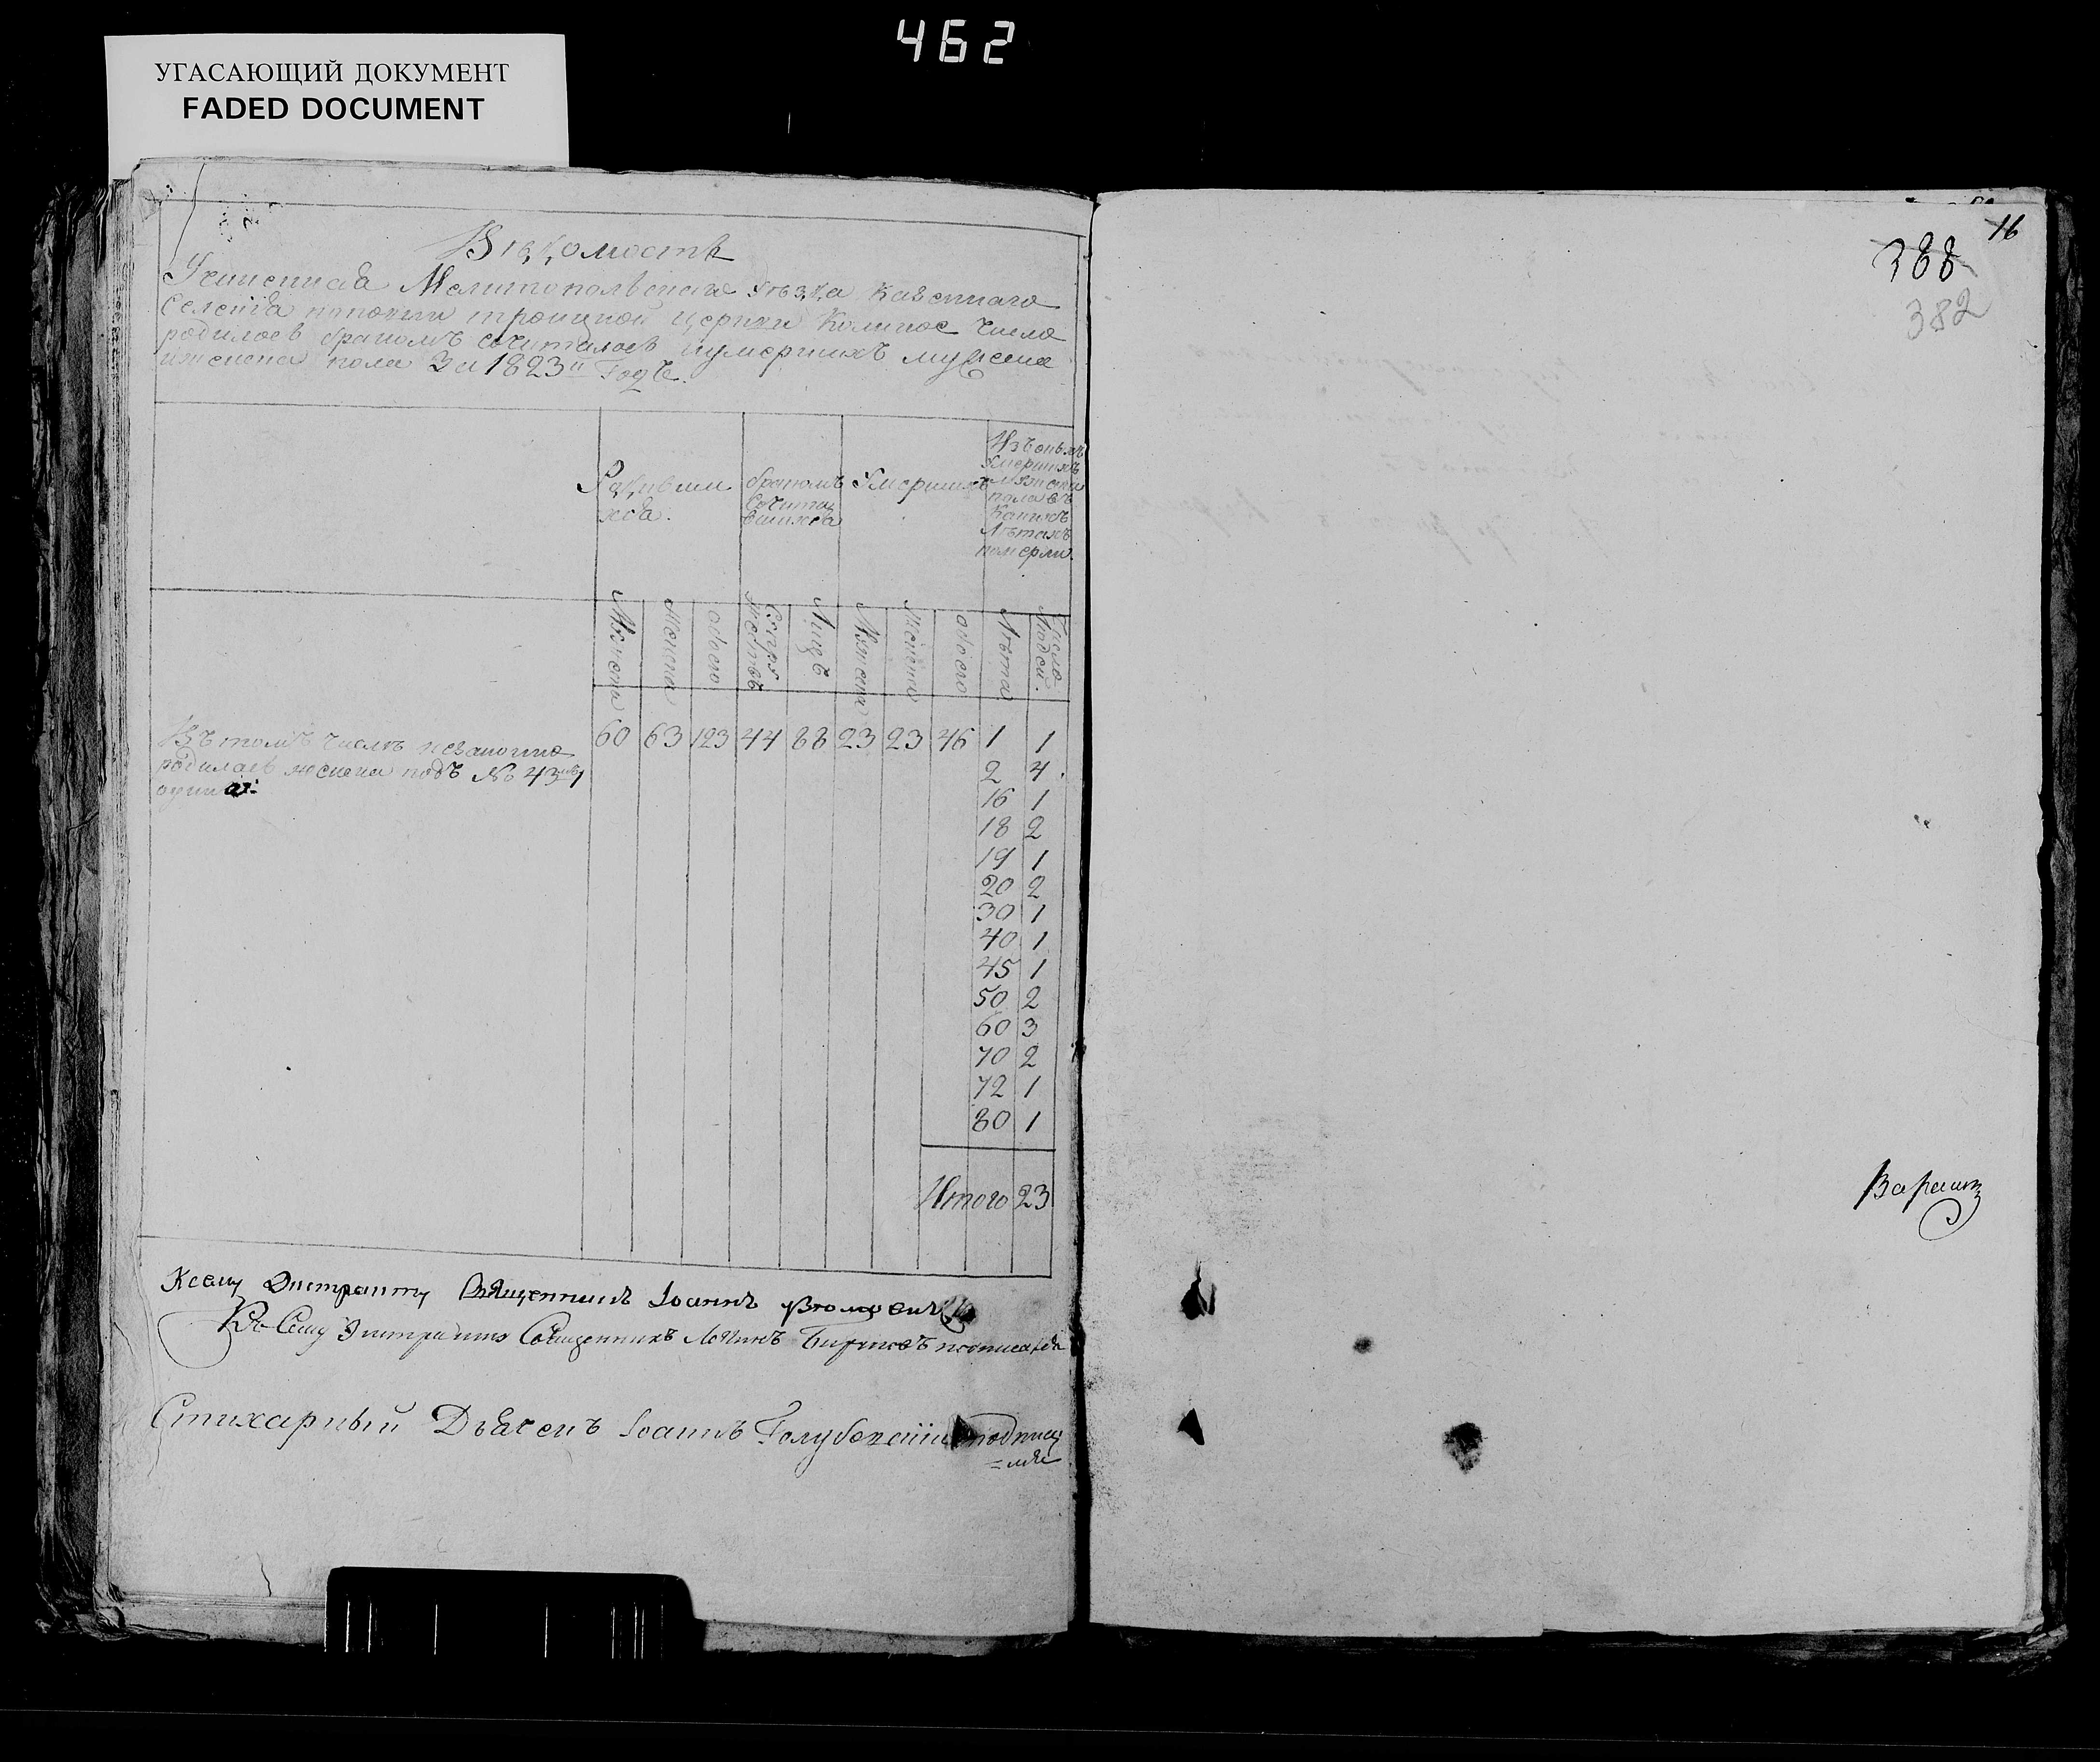 462
УГАСАЮЩИЙ ДОКУМЕНТ
FADED DOCUMENT
Вѣдомость
Учиненная Мелитопольскаго уѣзда казеннаго
Селенія троицкой церкви Коликое число
родилось бракомъ сочиталось иумершихъ мужеска
иженска пола За 1823й Годъ.
Родивши
хся
бракомъ
Сочита
вшихся
Умершихъ
Изъ оныхъ
Умершихъ
мужеска
пола въ
Какихъ
Лѣтахъ
померли.
Мужеска
Женска
обоего
Супру
жествъ
Лицъ
Мужеска
Женска
обоего
Лѣта
Число
Людей.
Въ томъ числѣ незаконно
родилась женска подъ № 43мъ 1
одна
60 63 123 44 88 23 23 46 1 1
2 4
16 1
18 2
19 1
20 2
30 1
40 1
45 1
50 2
60 3
70 2
72 1
80 1
Итого 23
Ксему Экстракту Священникъ Іоаннъ
Къ Сему Экстракту Священникъ Логинъ подписался
Стихарный Дьячекъ Іоаннъ Голубовскій подписа
=лся
16
388
382